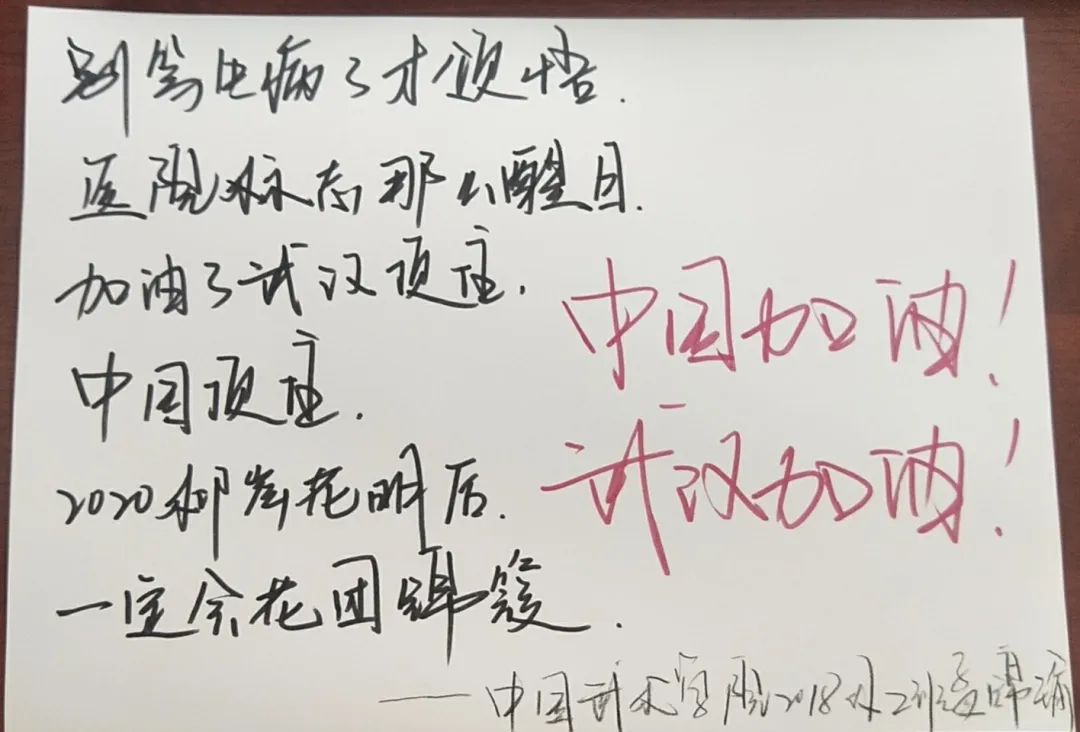 别等生病了才顿悟.
医院标志那么醒目.
加油了武汉顶住.
中国顶住.
2020柳岸花明后.
一定会花团锦簇.
中国加油!
武汉加油!
——中国武术学院2018级2班 锦瑜